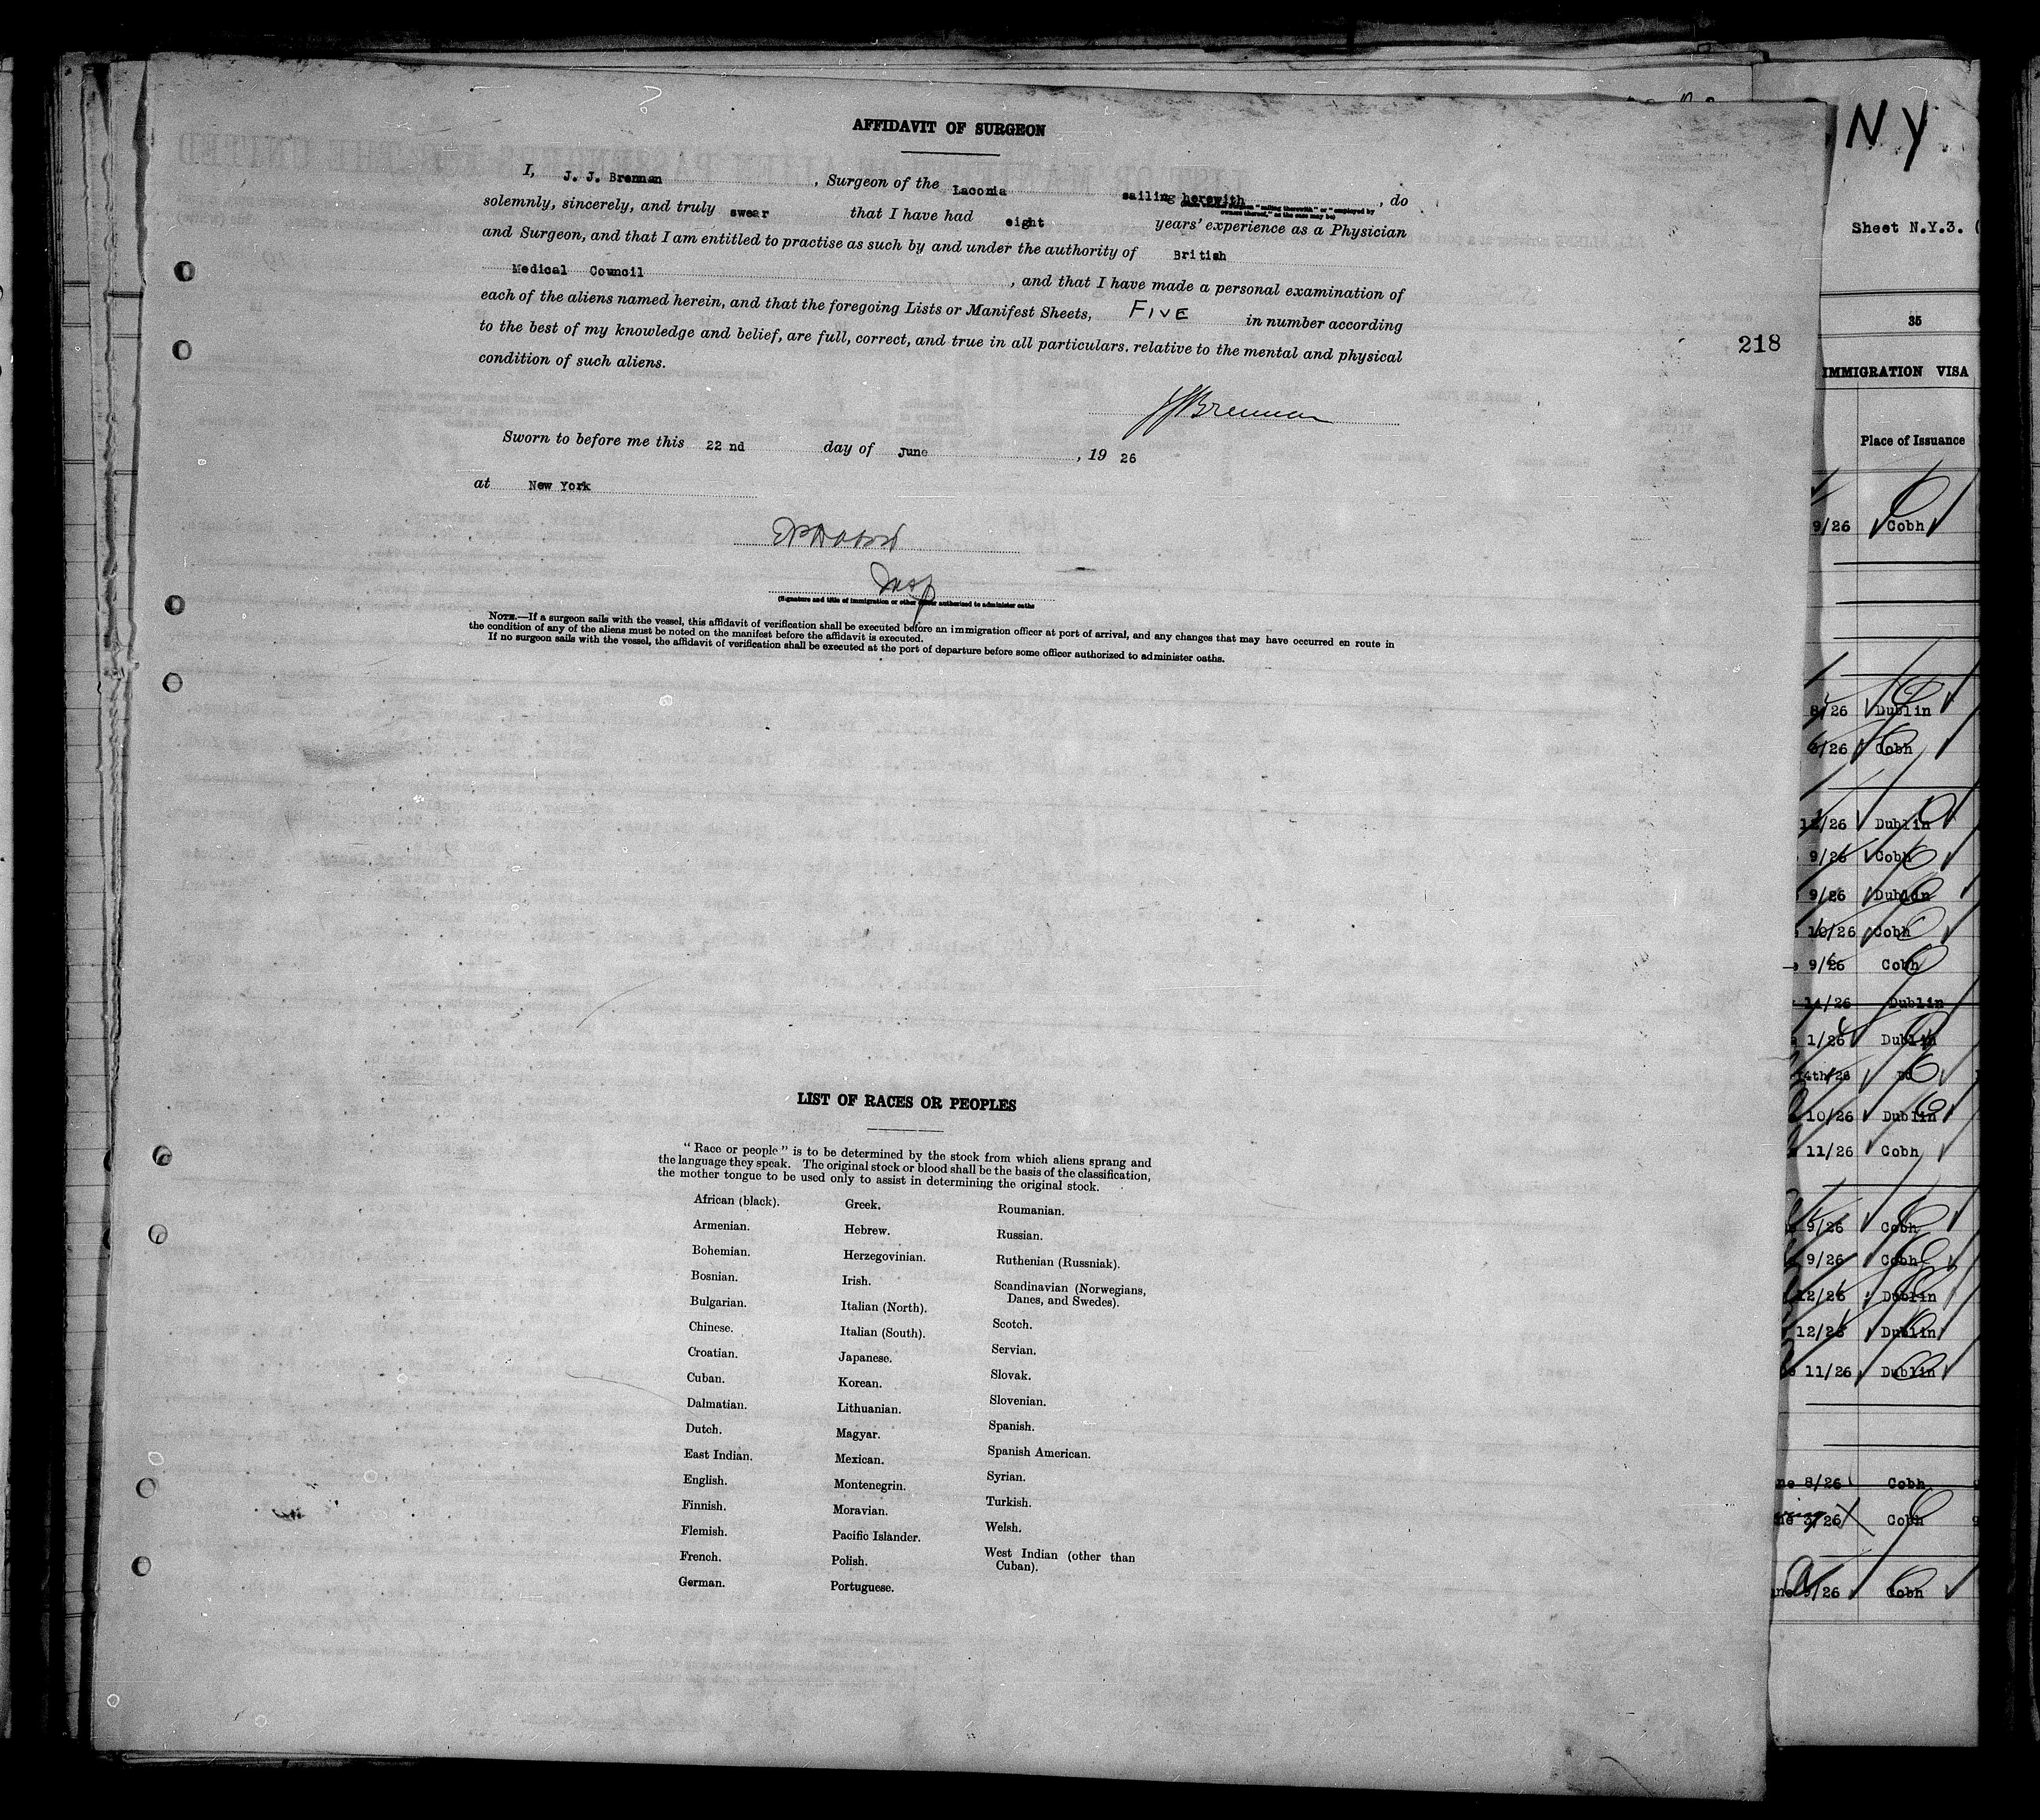 AFFIDAVIT OF SURGEON
I, J. J. Brennan, Surgeon of the Laconia sailing herewith, do
solemnly, sincerely, and truly swear that I have had eight years' experience as a Physician
and Surgeon, and that I am entitled to practise as such by and under the authority of British
Medical Council, and that I have made a personal examination of
each of the aliens named herein, and that the foregoing Lists or Manifest Sheets, FIVE in number according
to the best of my knowledge and belief, are full, correct, and true in all particulars. relative to the mental and physical
condition of such aliens.
218
JJBrennan
Sworn to before me this 22 nd day of June, 19 26
at New York
Insp
(Signature and title of immigration or other officer authorized to administer oaths
NOTE.—If a surgeon sails with the vessel, this affidavit of verification shall be executed before an immigration officer at port of arrival, and any changes that may have occurred en route in
the condition of any of the aliens must be noted on the manifest before the affidavit is executed.
If no surgeon sails with the vessel, the affidavit of verification shall be executed at the port of departure before some officer authorized to administer oaths.
LIST OF RACES OR PEOPLES
"Race or people" is to be determined by the stock from which aliens sprang and
the language they speak. The original stock or blood shall be the basis of the classification,
the mother tongue to be used only to assist in determining the original stock.
African (black).
Armenian.
Bohemian.
Bosnian.
Bulgarian.
Chinese.
Croatian.
Cuban.
Dalmatian.
Dutch.
East Indian.
English.
Finnish.
Flemish.
French.
German.
Greek.
Hebrew.
Herzegovinian.
Irish.
Italian (North).
Italian (South).
Japanese.
Korean.
Lithuanian.
Magyar.
Mexican.
Montenegrin.
Moravian.
Pacific Islander.
Polish.
Portuguese.
Roumanian.
Russian.
Ruthenian (Russniak).
Scandinavian (Norwegians,
Danes, and Swedes).
Scotch.
Servian.
Slovak.
Slovenian.
Spanish.
Spanish American.
Syrian.
Turkish.
Welsh.
West Indian (other than
Cuban).
NY
Sheet N.Y.3. (
35
IMMIGRATION VISA
Place of Issuance
9/26 Cobh
8/26 Dublin
6/26 Cobh
12/26 Dublin
9/26 Cobh
9/26 Dublin
10/26 Cobh
9/26 Cobh
11/26 Dublin
1/26 Dublin
4th/26
10/26 Dublin
11/26 Cobh
9/26 Cobh
9/26 Cobh
12/26 Dublin
12/26 Dublin
11/26 Dublin
ne 8/26 Cobh
3/26 Cobh
9/26 Cobh